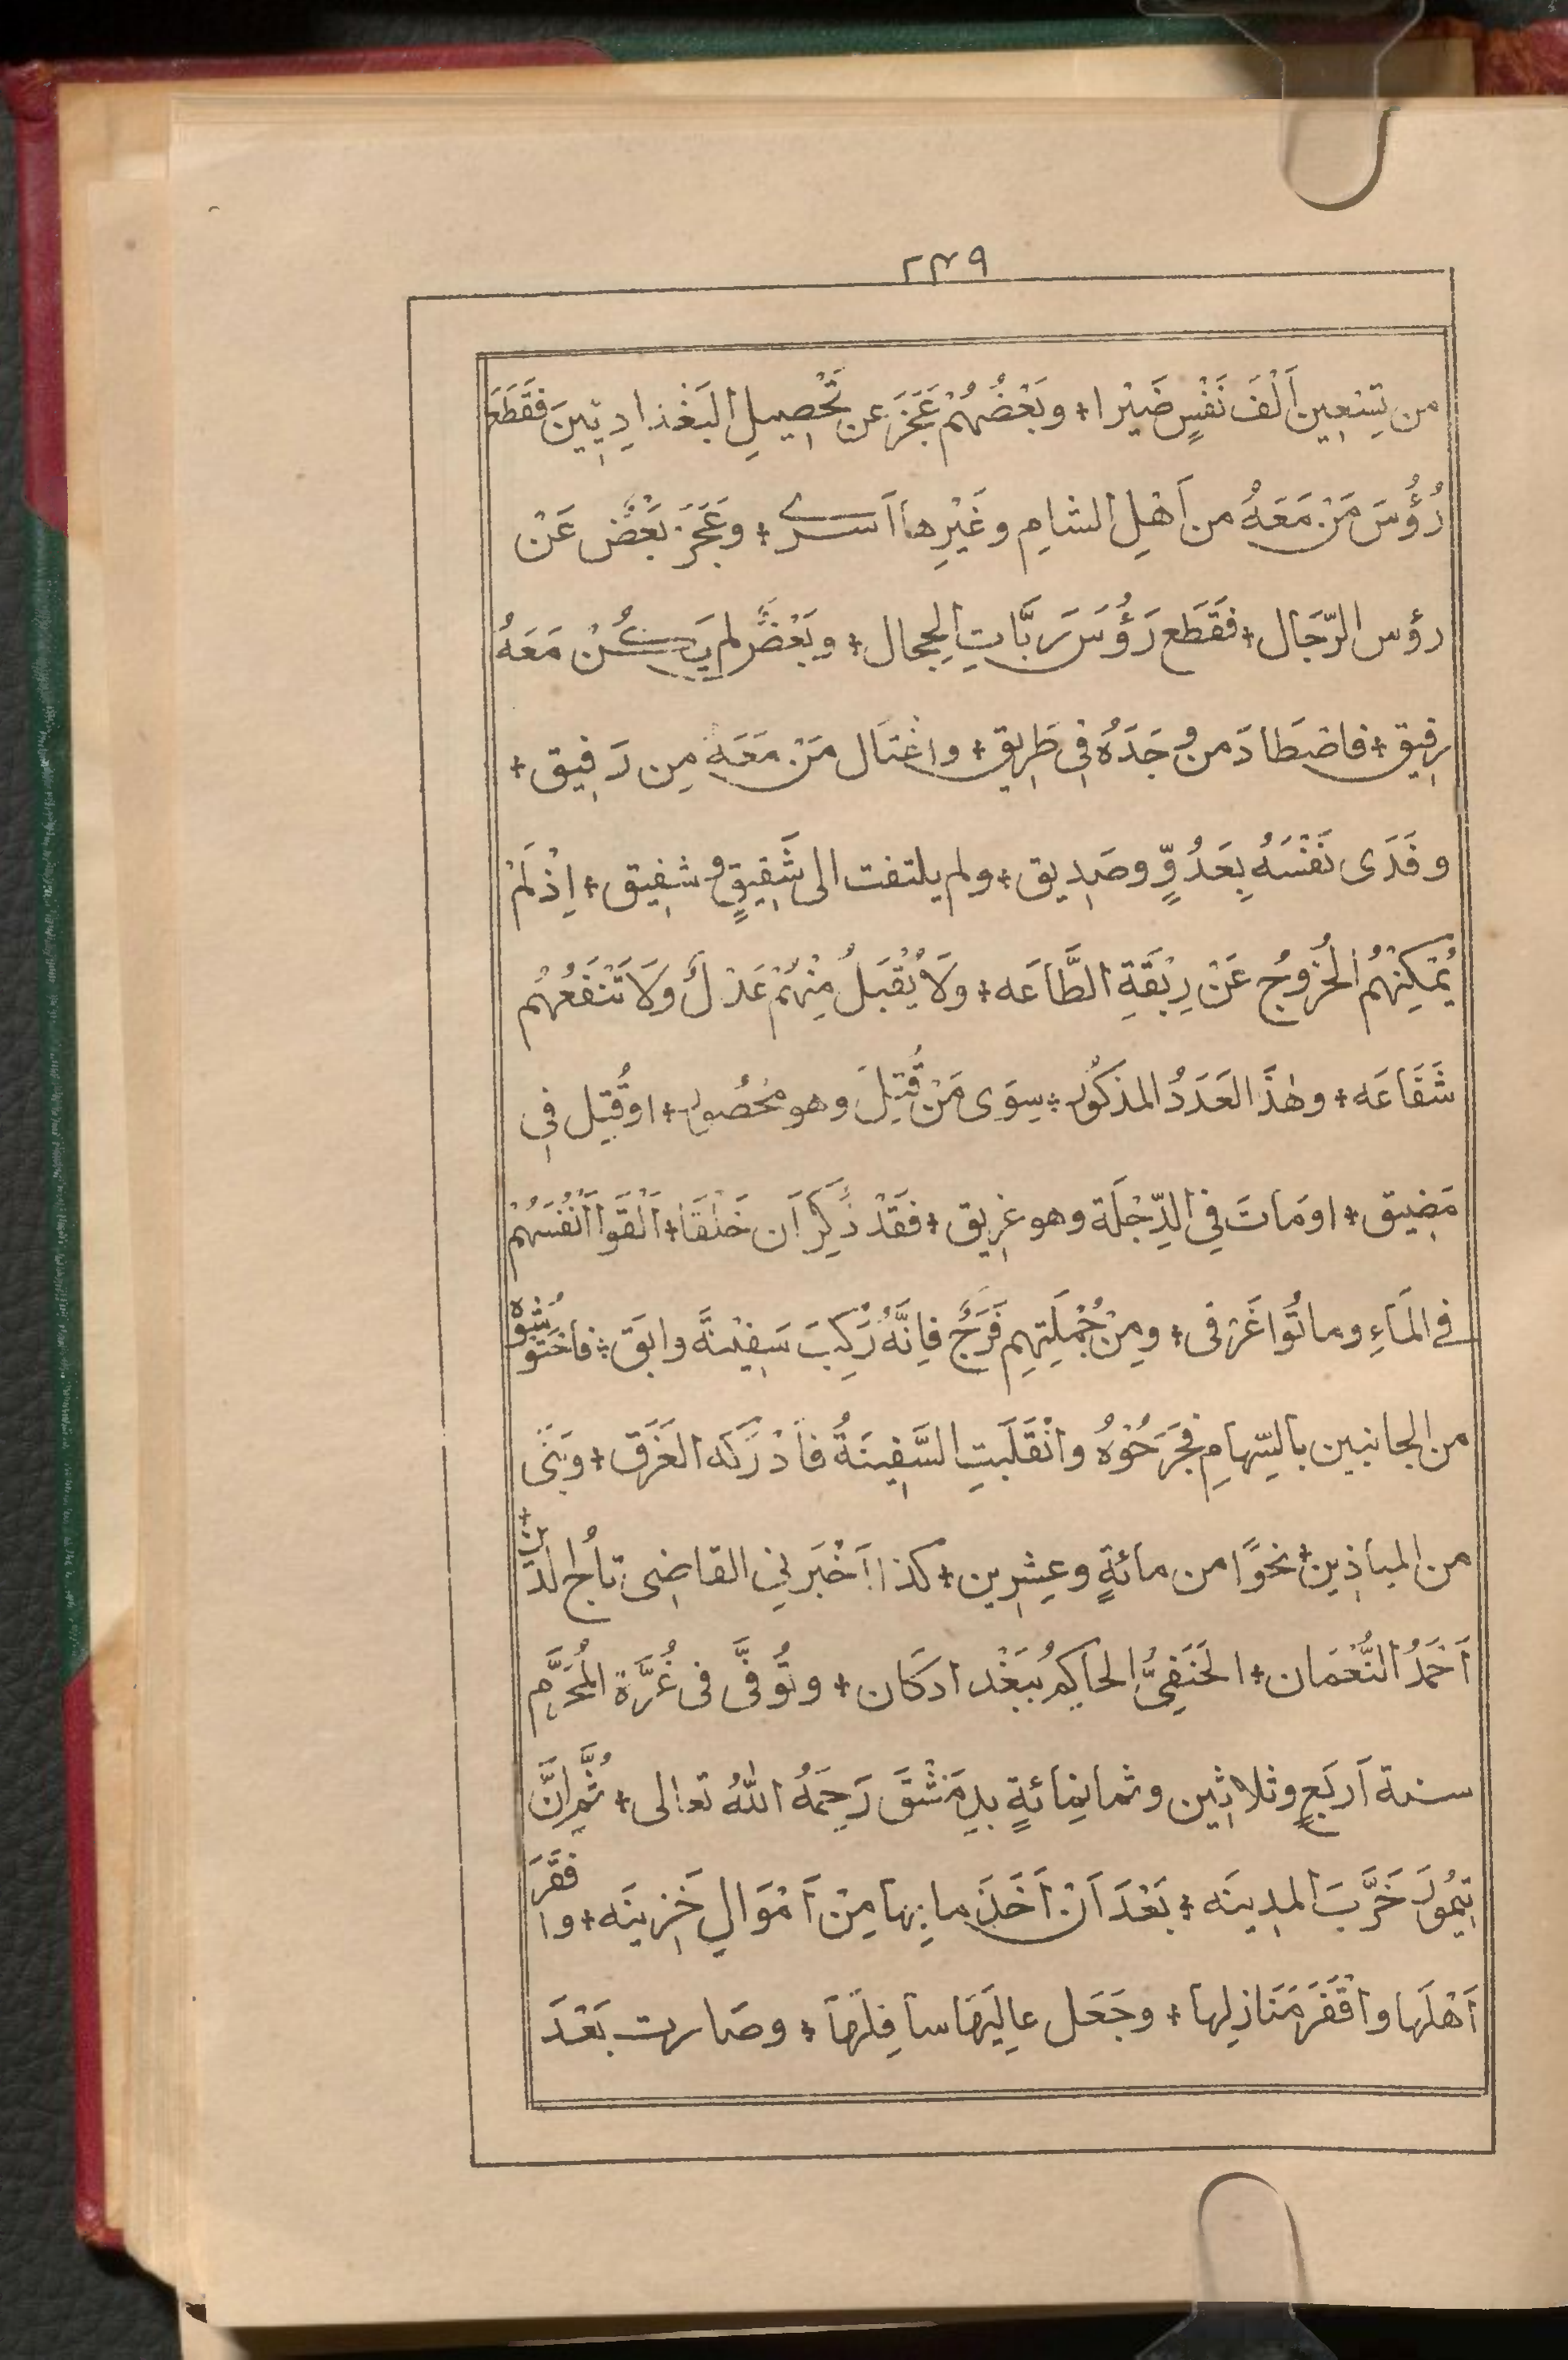 ٢٣٩
من تِسْعِين اَلْفَ نَفْسٍ ضَيْرا + وبَعْضُهُمْ عَجَزَ عن تَحْصِيلِ البَغْذادِيّينَ فَقَطَعَ
رُؤُسَ مَنْ مَعَهُ من اَهْلِ الشامِ وغَيْرِها اَسرے + وعَجَزَ بَعْضٌ عَنْ
رؤسِ الرّجَال + فَقَطَع رَؤُسَ رَبَّاتِ الحِجال + وبَعْضٌ لم يَكُنْ مَعَهُ
رفيق + فاصْطَادَ من وجَدَهُ فى طَرِيق + واغْتَال مَنْ مَعَه مِن رَفِيق +
وفَدَى نَفْسَهُ بِعَدُوٍّ وصَدِيق + ولم يلتفت الى شَقِيقٍ وشفِيق + اِذْ لَمْ
يُمْكِنْهُمُ الخُرُوجُ عَنْ رِبْقَةِ الطَّاعَه + ولَا يُقْبَلُ مِنْهُمْ عَدْلٌ ولَا تَنْفَعُهُم
شَفَاعَه + وهٰذَا العَدَدُ المذكُور + سِوَى مَنْ قُتِلَ وهو محْصُور + او قُتِل فى
مَضِيق + او مَاتَ فِي الدِّجْلَة وهو غرِيق + فَقَدْ ذُكِرَ اَن خَلْقًا + اَلْقَوا اَنْفُسَهُمْ
فے المَاءِ وماتُوا غَرْقى + ومِنْ جُمْلَتِهِم فَرَجٌ فاِنَّهُ رَكِبَ سَفِيْنَةً وابَق + فاحْتَوشُوهُ
من الجانبين بالسِّهامِ فجَرَحُوْهُ وانْقَلَبَتِ السَّفِينَةُ فاَدْرَكَه الغَرَق + وبَنَى
من المياذِين + نحوًا من مائةٍ وعِشرِين + كذا اَخْبَرنِي القاضِى تاجُ الدّين +
اَحْمَدُ النُّعْمَان + الحَنَفِىُّ الحاكِمُ ببَغْدادَ كان + وتُوفّىَ فى غُرَّة المُحَرَّم
سنة اَربَعٍ وثلاثِين وثمانِمائةٍ بدِمَشْقَ رَحِمَهُ اللّٰهُ تعالى + ثُمَّ اِنَّ
تِيْمُورَ خَرَّبَ المدِينَه + بَعْدَ اَنْ اَخَذَ ما بِها مِنْ اَمْوَالٍ خَزِينَه + وافْقَرَ
اَهْلَها واقْفَرَ مَنَازِلها + وجَعَل عالِيَهَا سافِلَهَا + وصَارت بَعْدَ